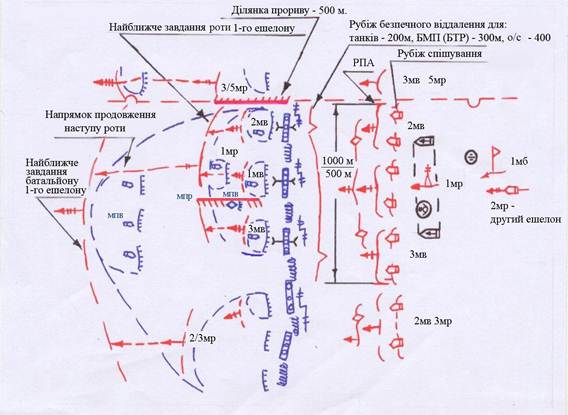 Ділянка прориву - 500 м.
Найближче завдання роти 1-го ешелону
Рубіж безпечного віддалення для:
танків - 200м, БМП (БТР) - 300м, о/с - 400
Рубіж спішування
РПА
3/5мр
3мв 5мр
Напрямок продовження
наступу роти
2мв
2мв
1мр
1000 м
500 м
1мб
Найближче
завдання
батальйону
1-го ешелону
1мв
1мр
мпв
мпр
мпв
2мр -
другий ешелон
3мв
3мв
2/3мр
2мв 3мр